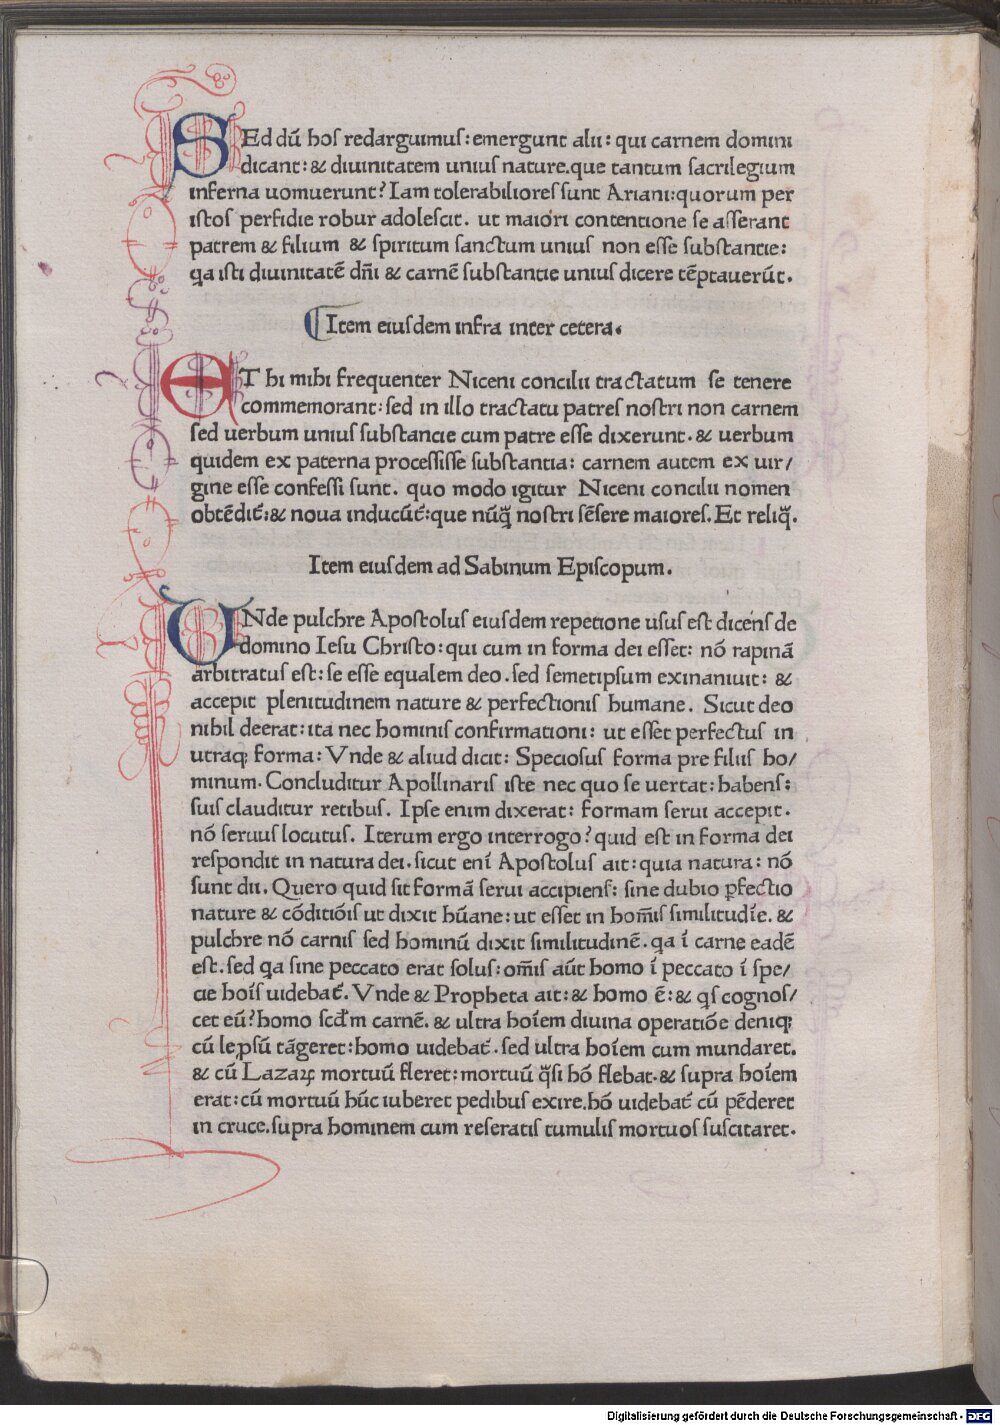 SEd dū hoſ redarguimuſ: emergunt alii: qui carnem domini
dicant: & diuinitatem uniuſ nature. que tantum ſacrilegium
inferna uomuerunt? Iam tolerabilioreſ ſunt Ariani: quorum per
iſtoſ perfidie robur adoleſcit. ut maiori contentione ſe aſſerant
patrem & filium & ſpiritum ſanctum uniuſ non eſſe ſubſtantie:
qa iſti diuinitatē dn̄i & carnē ſubſtantie uniuſ dicere tēptauerūt.
Item eiuſdem infra inter cetera.
ET hi mihi frequenter Niceni concilii tractatum ſe tenere
commemorant: ſed in illo tractatu patreſ noſtri non carnem
ſed uerbum uniuſ ſubſtancie cum patre eſſe dixerunt. & uerbum
quidem ex paterna proceſſiſſe ſubſtantia: carnem autem ex uir/
gine eſſe confeſſi ſunt. quo modo igitur Niceni concilii nomen
obtēdit᷑: & noua inducūt᷑: que nūq̄ noſtri ſēſere maioreſ. Et reliq̄.
Item eiuſdem ad Sabinum Epiſcopum.
VNde pulchre Apoſtoluſ eiuſdem repetione uſuſ eſt dicenſ de
domino Ieſu Chriſto: qui cum in forma dei eſſet: nō rapinā
arbitratuſ eſt: ſe eſſe equalem deo. ſed ſemetipſum exinaniuit: &
accepit plenitudinem nature & perfectioniſ humane. Sicut deo
nihil deerat: ita nec hominiſ confirmationi: ut eſſet perfectuſ in
utraqꝫ forma: Vnde & aliud dicit: Specioſuſ forma pre filiiſ ho/
minum. Concluditur Apollinariſ iſte nec quo ſe uertat: habenſ:
ſuiſ clauditur retibuſ. Ipſe enim dixerat: formam ſerui accepit.
nō ſeruuſ locutuſ. Iterum ergo interrogo? quid eſt in forma dei
reſpondit in natura dei. ſicut enī Apoſtoluſ ait: quia natura: nō
ſunt dii. Quero quid ſit formā ſerui accipienſ: ſine dubio ꝑfectio
nature & cōditiōiſ ut dixit hūane: ut eſſet in hom̄iſ ſimilitudīe. &
pulchre nō carniſ ſed hominū dixit ſimilitudinē. qa ī carne eadē
eſt. ſed qa ſine peccato erat ſoluſ: om̄iſ aūt homo ī peccato ī ſpe/
cie hoīſ uidebat᷑. Vnde & Propheta ait: & homo ē: & qſ cognoſ/
cet eū? homo ſcd̄m carnē. & ultra hoīem diuina operatiōe deniqꝫ
cū leꝓſū tāgeret: homo uidebat᷑. ſed ultra hoīem cum mundaret.
& cū Lazaꝝ mortuū fleret: mortuū q̄ſi hō flebat. & ſupra hoīem
erat: cū mortuū hūc iuberet pedibuſ exire. hō uidebat᷑ cū pēderet
in cruce. ſupra hominem cum reſeratiſ tumuliſ mortuoſ ſuſcitaret.
Digitalisierung gefördert durch die Deutsche Forschungsgemeinschaft - DFG